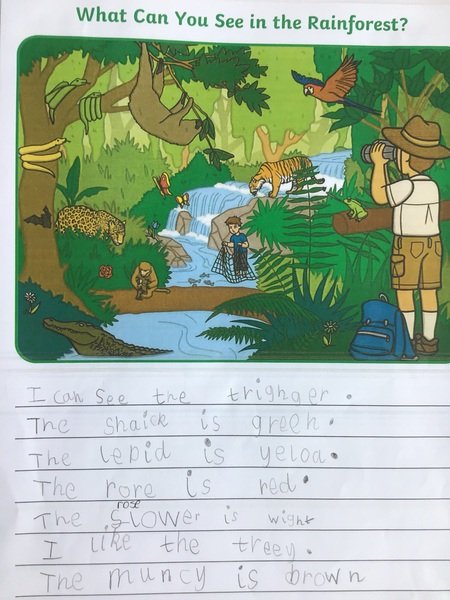 What Can You See in the Rainforest?
I can see the trighger.
The shaick is green.
The lepid is yeloa.
The rore is red.
rose
The slower is wight
I like the treey.
The muncy is brown